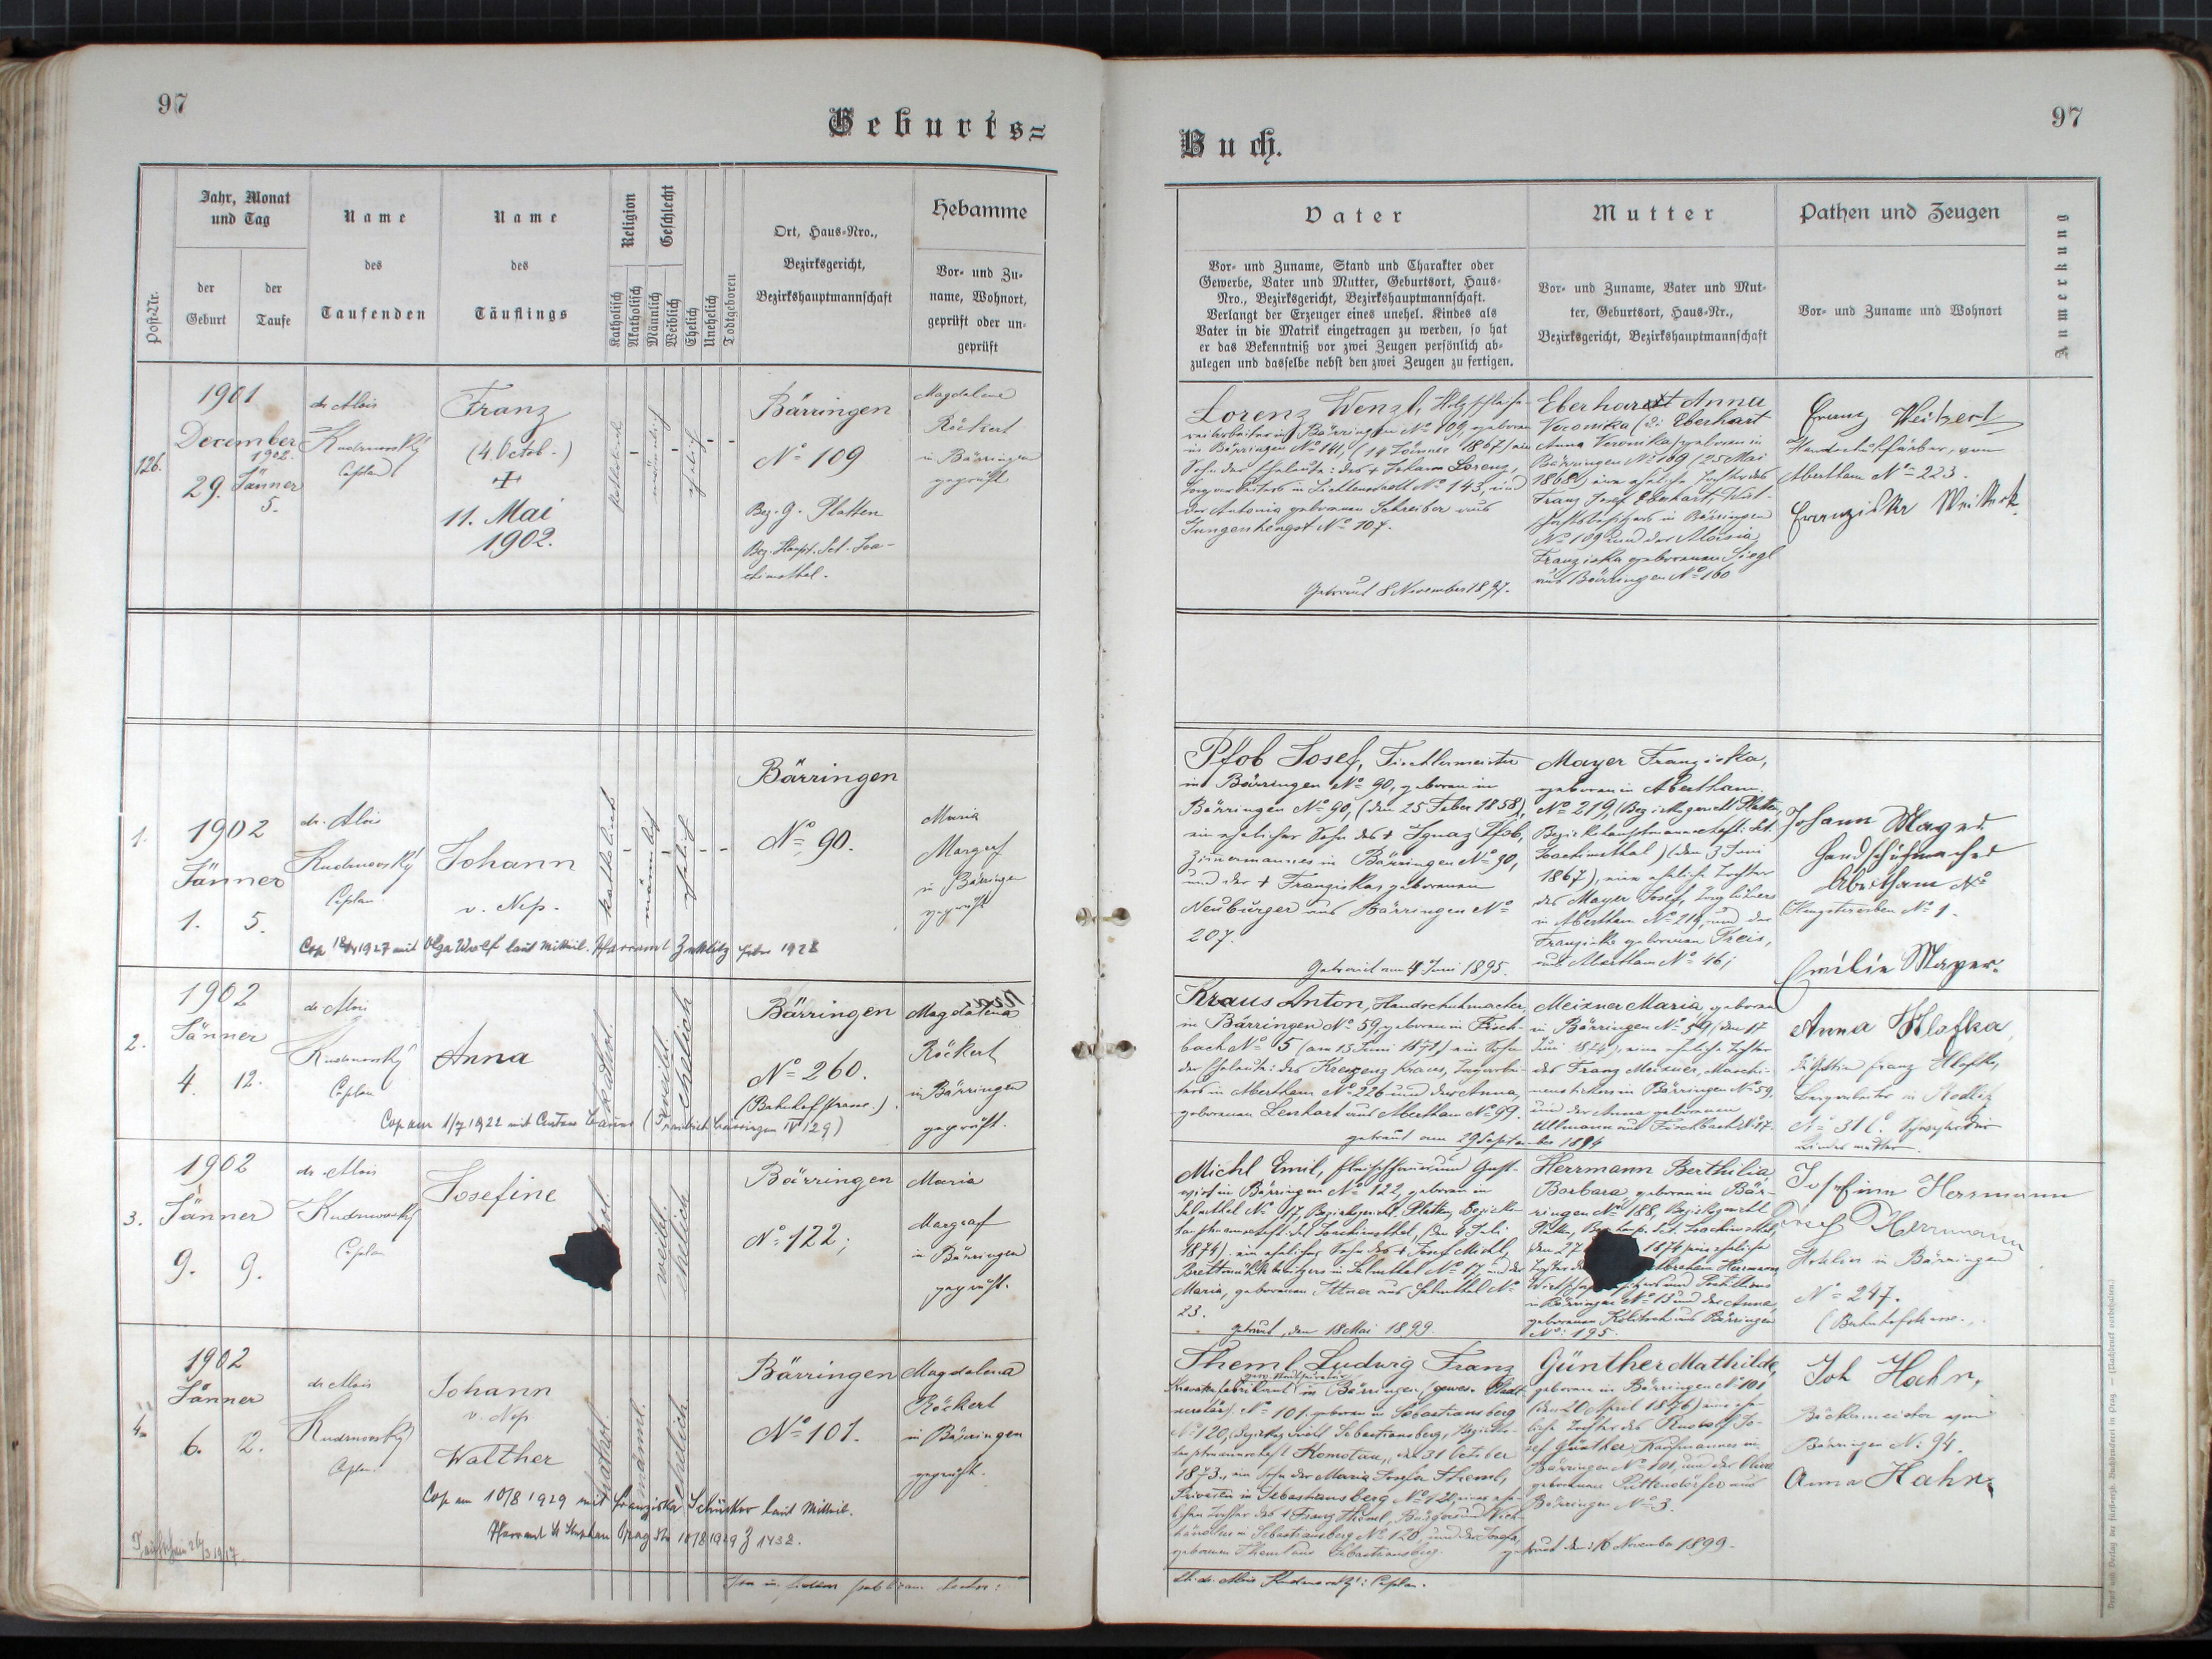 97
Geburts=
Post-Nr.
Jahr, Monat
und Tag
der
Geburt
der
Taufe
Name
des
Taufenden
Name
des
Täuflings
Religion
Katholisch
Akatholisch
Geschlecht
Männlich
Weiblich
Ehelich
Unehelich
Todtgeboren
Ort, Haus-Nro.,
Bezirksgericht,
Bezirkshauptmannschaft
Hebamme
Vor- und Zu-
name, Wohnort,
geprüft oder un-
geprüft
126.
1901
December
1902.
29. Jänner
5.
dr Alois
Kudrnovský
Caplan
Franz
(4. Octob.)
+
11. Mai
1902.
katholisch
männlich
ehelich
Bärringen
No 109
Bez. G. Platten
Bez. Haupt. Sct. Joa-
chimsthal.
Magdalena
Röckert
in Bärringen
geprüft
1.
1902
Jänner
1. 5.
dr. Alois
Kudrnovský
Caplan
Johann
v. Nep.
katholisch
männlich
ehelich
Bärringen
No 90.
Maria
Margraf
in Bärringen
geprüft
1927 mit Olga Wolf laut Mitteil. Pfarramt 1928
2.
1902
Jänner
4. 12.
dr Alois
Kudrnovský
Caplan
Anna
kathol.
weibl.
ehelich
Bärringen
No 260.
(Bahnhofstrasse.)
Magdalena
Röckert
in Bärringen
geprüft.
Cop am 1922 mit
3.
1902
Jänner
9. 9.
dr Alois
Kudrnovský
Caplan
Josefine
weibl.
ehelich
Bärringen
No 122;
Maria
Margraf
in Bärringen
geprüft.
4.
1902
Jänner
6. 12.
dr Alois
Kudrnovský
Caplan
Johann
v. Nep.
Walther
kathol.
männl.
ehelich
Bärringen
No 101.
Magdalena
Röckert
in Bärringen
geprüft.
Cop am 10/8 1929 mit Franziska Schücker laut Mitteil.
Pfarramt St Stephan Prag 10/8 1929 Z 1432.
97
Buch.
Vater
Vor- und Zuname, Stand und Charakter oder
Gewerbe, Vater und Mutter, Geburtsort, Haus-
Nro., Bezirksgericht, Bezirkshauptmannschaft.
Verlangt der Erzeuger eines unehel. Kindes als
Vater in die Matrik eingetragen zu werden, so hat
er das Bekenntniß vor zwei Zeugen persönlich ab-
zulegen und dasselbe nebst den zwei Zeugen zu fertigen.
Mutter
Vor- und Zuname, Vater und Mut-
ter, Geburtsort, Haus-Nr.,
Bezirksgericht, Bezirkshauptmannschaft
Pathen und Zeugen
Vor- und Zuname und Wohnort
Anmerkung
Lorenz Wenzl,
in Bärringen No 109 geboren
in Bärringen No 141, (14 Jänner 1867) ein
Sohn der Eheleute: des + Johann Lorenz,
in Lichtenstadt No 143, und
der Antonia geborenen Schreiber aus
Jungenhengst No 107.
Getraut 8 November 1897.
Eberhardt Anna
Veronika (Eberhart
Anna Veronika) geboren in
Bärringen No 109 (25 Mai
1868) eine eheliche Tochter des
Franz Josef Eberhart, Wirt-
schaftsbesitzers in Bärringen
No 109 und der Aloisia
Franziska geborenen Siegl
aus Bärringen No 160
Franz
Handschuhfärber, von
Abertham No 223.
Franziska
Pfob Josef, Tischlermeister
in Bärringen No 90, geboren in
Bärringen No 90, (den 25 Feber 1858),
ein ehelicher Sohn des + Ignaz Pfob,
Zimmermannes in Bärringen No 90,
und der + Franziska, geborenen
Neuburger aus Bärringen No
207.
Getraut am 4 Juni 1895.
Mayer Franziska,
geboren in Abertham
No 219, (Bezirksgericht Platten,
Bezirkshauptmannschaft: Sct.
Joachimsthal) (den 3 Juni
1867), eine eheliche Tochter
des Mayer Josef,
in Abertham No 219, und der
Franziska geborenen Preis,
aus Abertham No 46;
Johann Mayer
Handschuhmacher
Abertham No
Hengstererben No 1.
Emilie Mayer.
Kraus Anton, Handschuhmacher
in Bärringen No 59, geboren in Fisch-
bach No 5 (am 15 Juni 1871) ein Sohn
der Eheleute: des Kreszenz Kraus,
in Abertham No 226 und der Anna,
geborenen Lenhart aus Abertham No 99.
getraut am 29 September 1894
Meixner Maria, geboren
in Bärringen No 59 (den 17
Juni 1874), eine eheliche Tochter
des Franz Meixner, Maschi-
nenstickers in Bärringen No 59,
und der Anna geborenen
Ullmann aus Fischbach No 27.
Anna
Michl Emil, Fleischhauer und Gast-
wirt in Bärringen No 122, geboren in
Salmthal No 17, Bezirksgericht: Platten, Bezirks-
hauptmannschaft: Sct Joachimsthal,
1874) ein ehelicher Sohn des + Josef Michl,
Brettmühlbesitzers in Salmthal No 17, und der
Maria, geborenen Ittner aus Salmthal No
23.
getraut, den 18 Mai 1899.
Herrmann Berthilia
Barbara, geboren in Bär-
ringen No 188, Bezirksgericht
Platten, Bez. haup. Sct. Joachimsthal,
den 27 1874 eine eheliche
Tochter des Abraham Herrmann
und Postillions
in Bärringen No 15 und der Anna
geborenen Kolitsch aus Bärringen
No: 195.
Josefine Herrmann
Josef Herrmann
in Bärringen
No 247.
(Bahnhofstrasse.)
Theml Ludwig Franz
in Bärringen,
No 101, geboren in Sebastiansberg
No 120, Bezirksgericht Sebastiansberg, Bezirks-
hauptmannschaft Komotau, den 31 October
1873, ein Sohn der Maria Josefa Theml,
Privatin in Sebastiansberg No 120, einer ehe-
lichen Tochter des + Franz Theml, Bürgers und
in Sebastiansberg No 120, und der Josefa,
geborenen Theml aus Sebastiansberg.
Günther Mathilde,
geboren in Bärringen No 101
(den 20 April 1876) eine ehe-
liche Tochter des Rudolf Jo-
sef Günther Kaufmannes in
Bärringen No 101, und der
geborenen Püttendörfer aus
Bärringen No 3.
getraut den: 16 November 1899.
Joh Hahn,
Bäckermeister von
Bärringen No 94.
Anna Hahn.
dr. Alois Kudrnovský: Caplan.